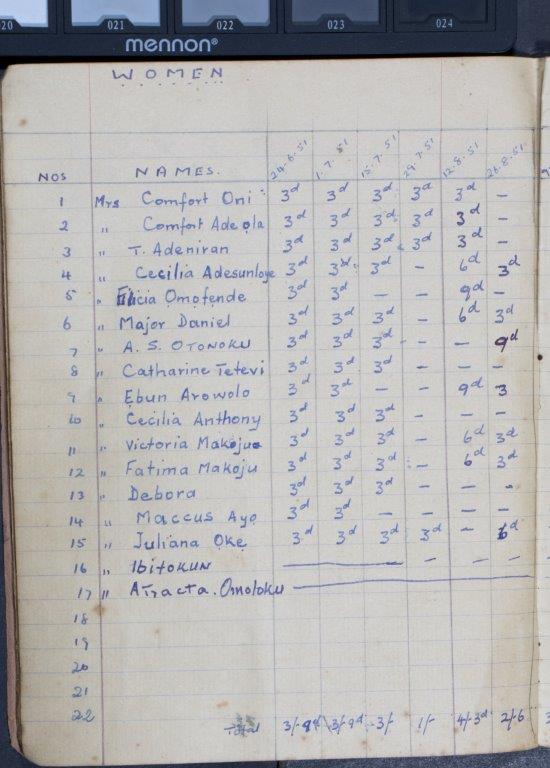 020 021 022 023 024
mennon®
WOMEN
NOS NAMES. 24.6.51 1.7.51 15.7.51 29.7.51 12.8.51 26.8.51
1 Mrs Comfort Oni 3d 3d 3d 3d 3d -
2 " Comfort Adeola 3d 3d 3d 3d 3d -
3 " T. Adeniran 3d 3d 3d 3d 3d -
4 " Cecilia Adesunloye 3d 3d 3d - 6d 3d
5 " Omofende 3d 3d - - 9d -
6 " Major Daniel 3d 3d 3d - 6d 3d
7 " A. S. OTONOKU 3d 3d 3d - - 9d
8 " Catharine Tetevi 3d 3d 3d - - -
9 " Ebun Arowolo 3d 3d - - 9d 3
10 " Cecilia Anthony 3d 3d 3d - - -
11 " Victoria Makoju 3d 3d 3d - 6d 3d
12 " Fatima Makoju 3d 3d 3d - 6d 3d
13 " Debora 3d 3d 3d - - -
14 " Maccus Ayo 3d 3d - - - -
15 " Juliana Oke 3d 3d 3d 3d - 6d
16 " Ibitokun - - -
17 " Atracta. Omoloku
18
19
20
21
22
Total 3/-9d 3/-9d 3/- 1/- 4/-3d 2/-6